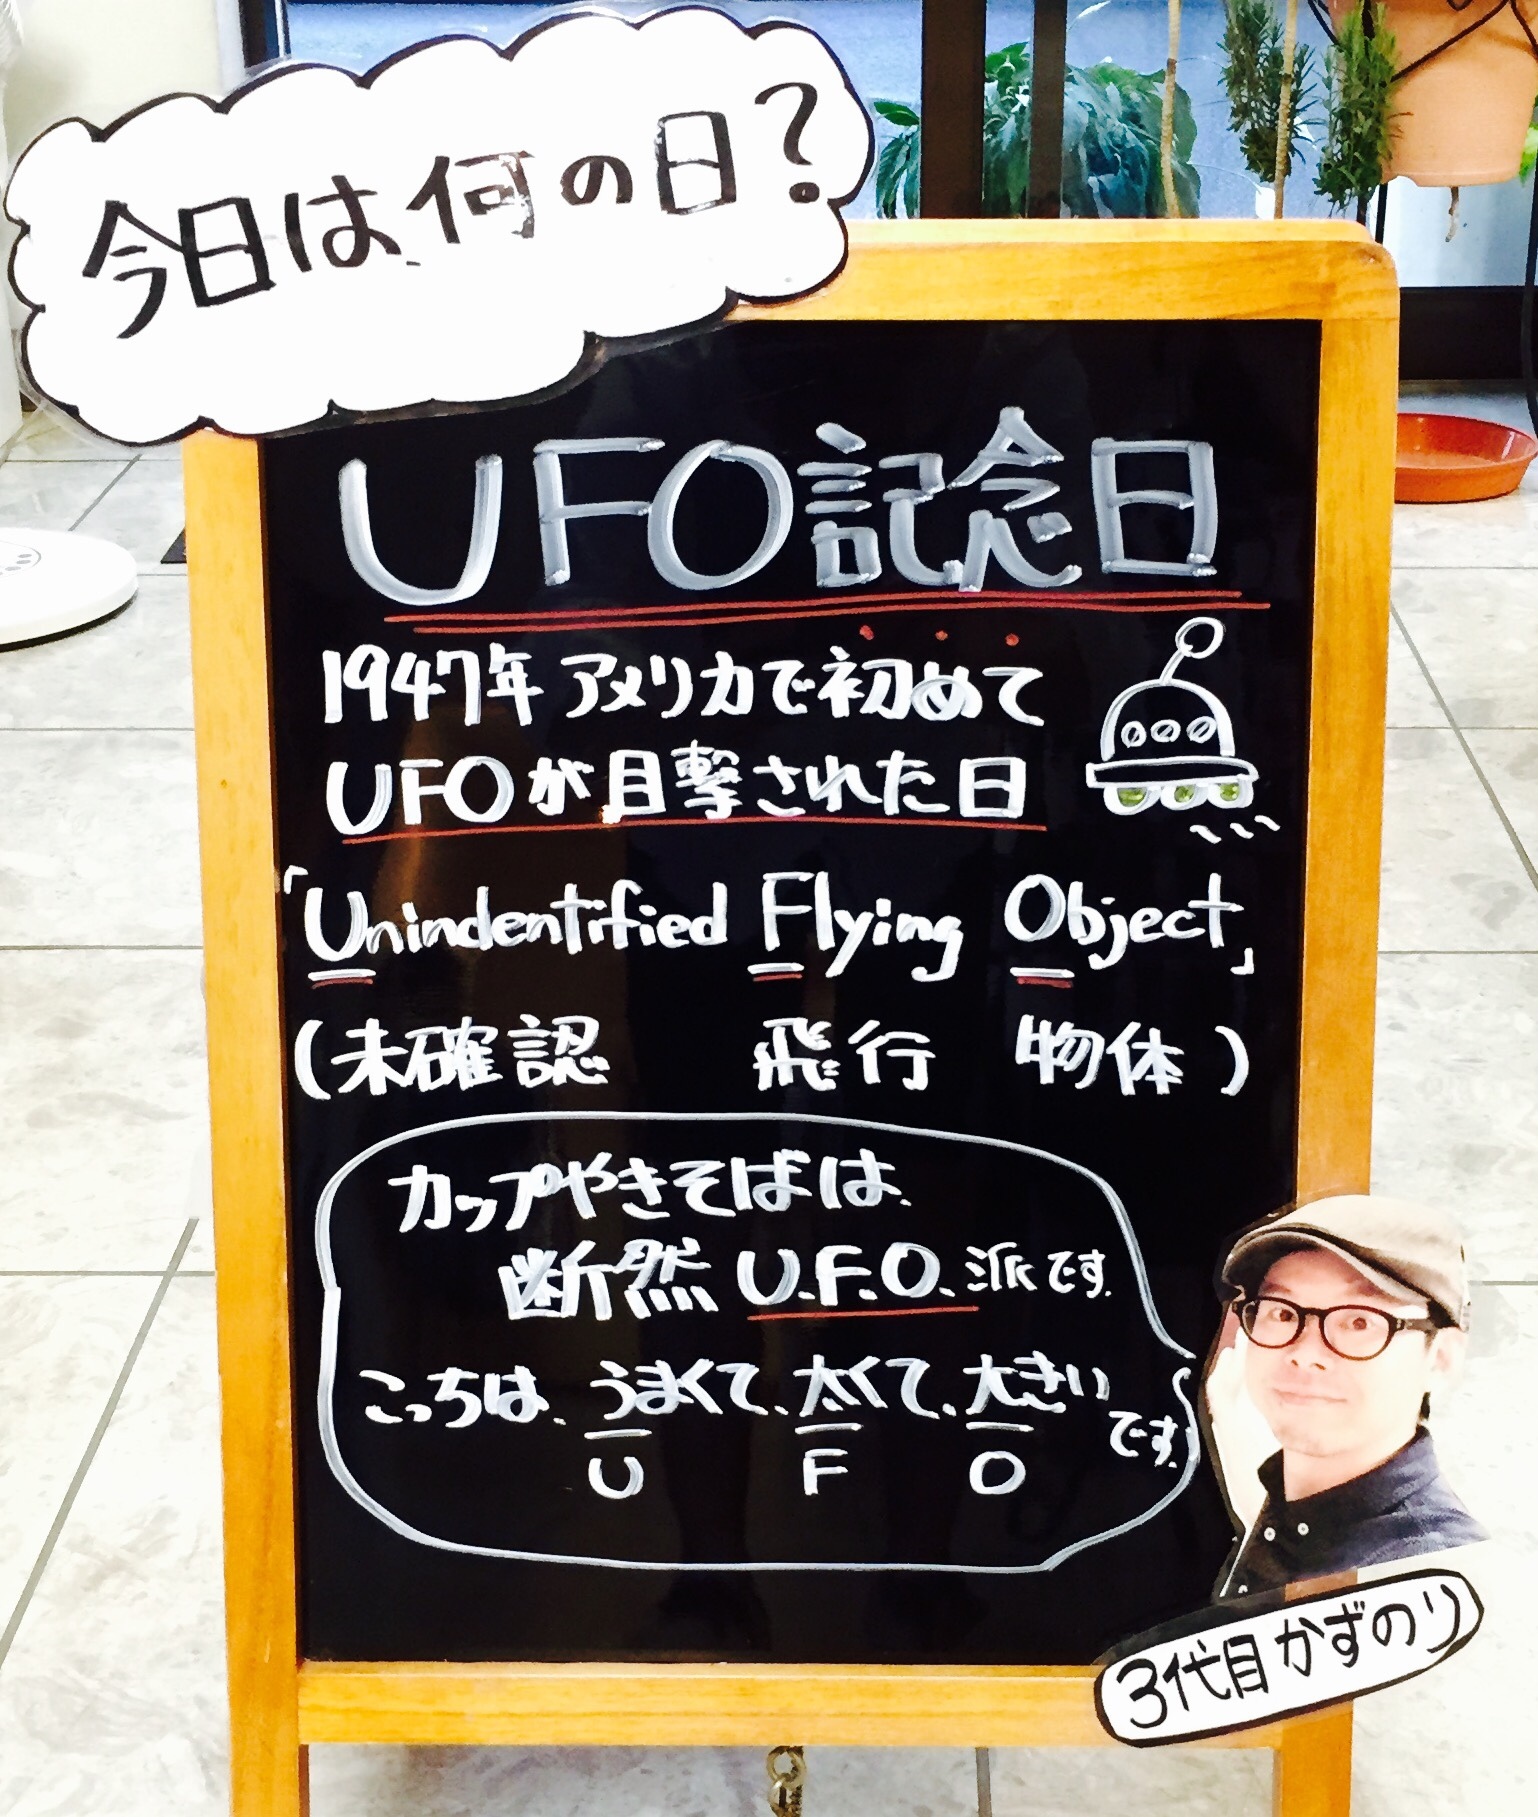 今日は何の日?
UFO記念日
1947年アメリカで初めて
UFOが目撃された日
「Unindentified Flying Object」
(未確認 飛行 物体)
カップやきそばは、
断然U.F.O.派です。
こっちは、うまくて、太くて、大きい
です。
U F O
3代目かずのり